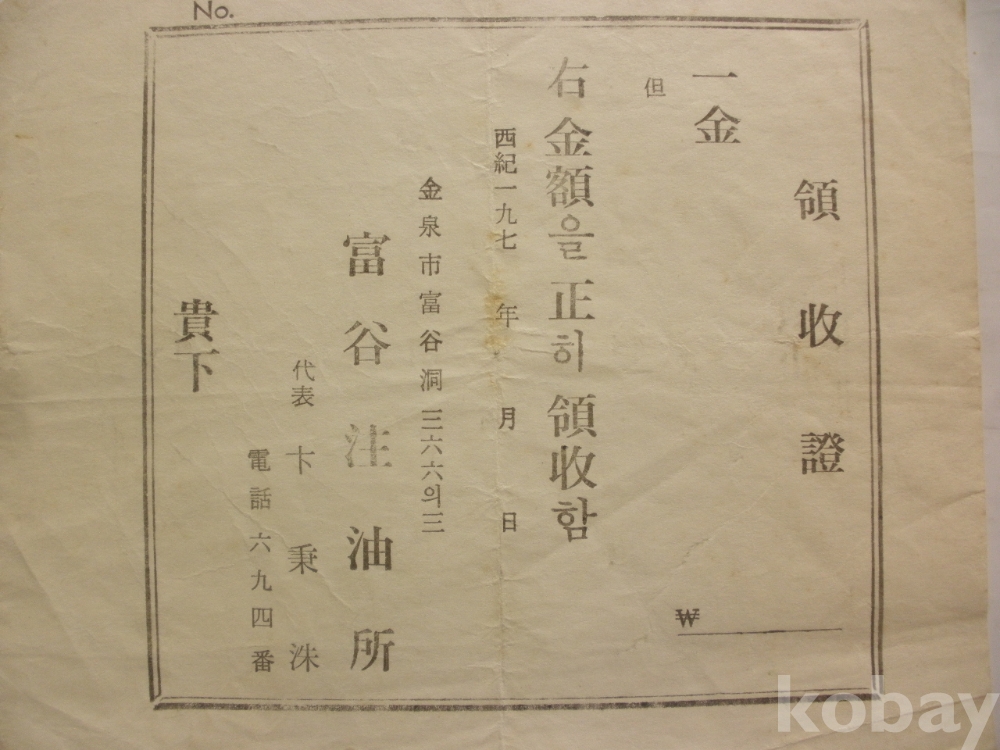 No.
領收證
一金
₩
但
右金額을正히領收함
西紀一九七 年 月 日
金泉市富谷洞三六六의三
富谷注油所
代表 卞秉洙
電話六九四番
貴下
kobay